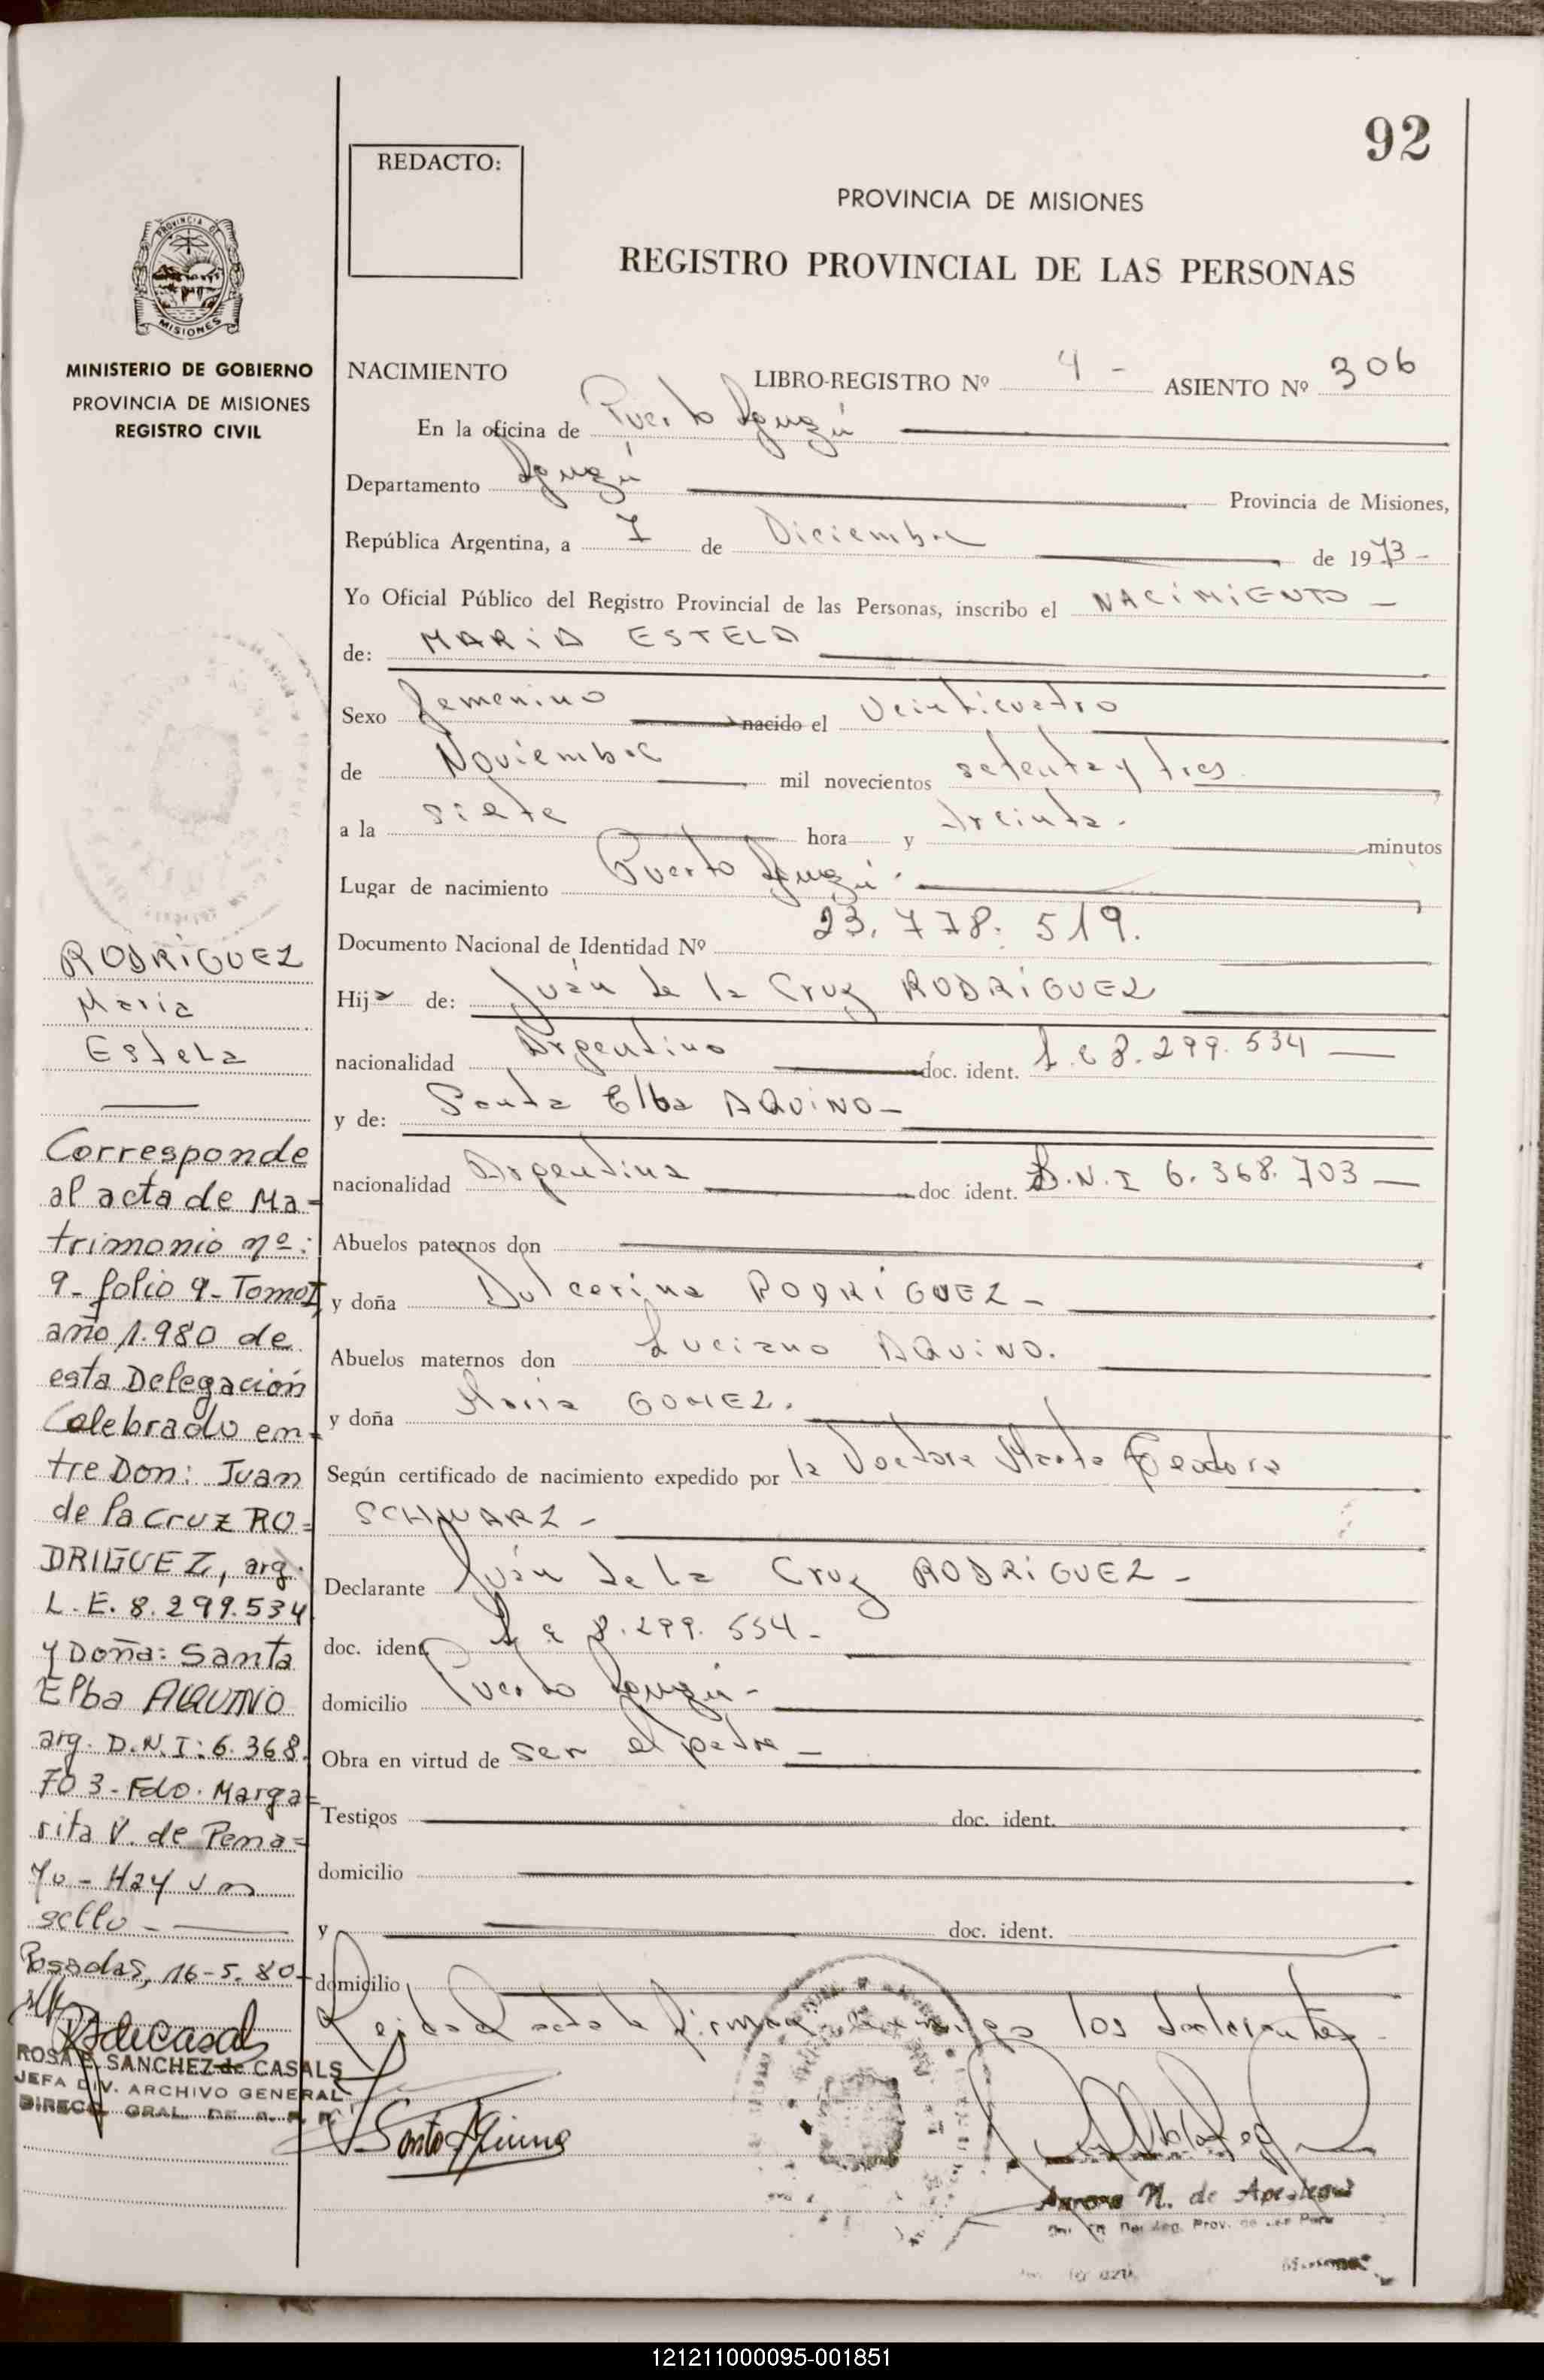 92
REDACTO:
PROVINCIA DE MISIONES
REGISTRO PROVINCIAL DE LAS PERSONAS
PROVINCIA DE
MISIONES
MINISTERIO DE GOBIERNO
PROVINCIA DE MISIONES
REGISTRO CIVIL
NACIMIENTO LIBRO-REGISTRO Nº 4 - ASIENTO Nº 306
En la oficina de Puerto Iguazú
Departamento Iguazú Provincia de Misiones,
República Argentina, a 7 de Diciembre de 1973 -
Yo Oficial Público del Registro Provincial de las Personas, inscribo el NACIMIENTO -
de: MARIA ESTELA
Sexo femenino nacido el Veinticuatro
de Noviembre mil novecientos setenta y tres
a la siete hora y treinta. minutos
Lugar de nacimiento Puerto Iguazú.
Documento Nacional de Identidad Nº 23.778.519.
Hija de: Juán de la Cruz RODRÍGUEZ
nacionalidad Argentino doc. ident. L.e 8.299.534
y de: Santa Elba AQUINO-
nacionalidad Argentina doc ident. D.N.I 6.368.703
Abuelos paternos don
y doña Dulcerina RODRÍGUEZ -
Abuelos maternos don Luciano AQUINO.
y doña María GOMEZ.
Según certificado de nacimiento expedido por la Doctora Marta Teodora
SCHWARZ -
Declarante Juán de la Cruz RODRÍGUEZ -
doc. ident. L e 8.299.534-
domicilio Puerto Iguazú-
Obra en virtud de ser el padre -
Testigos doc. ident.
domicilio
y doc. ident.
domicilio
Leida el acta la firman conmigo los declarantes
Santa Aquino
Aurora N. de
RODRÍGUEZ
María
Estela
Corresponde
al acta de Ma=
trimonio nº:
9- folio 9- Tomo I
año 1.980 de
esta Delegación
Celebrado en=
tre Don: Juan
de la Cruz RO=
DRIGUEZ, arg.
L.E. 8.299.534
y Doña: Santa
Elba AQUINO
arg. D.N.I: 6.368.
703 - Fdo. Marga=
rita V. de Pena=
yo - Hay un
sello -
Posadas, 16-5-80-
ROSA E. SANCHEZ de CASALS
JEFA DIV. ARCHIVO GENERAL
DIRECC. GRAL. DE R. P. P.
121211000095-001851